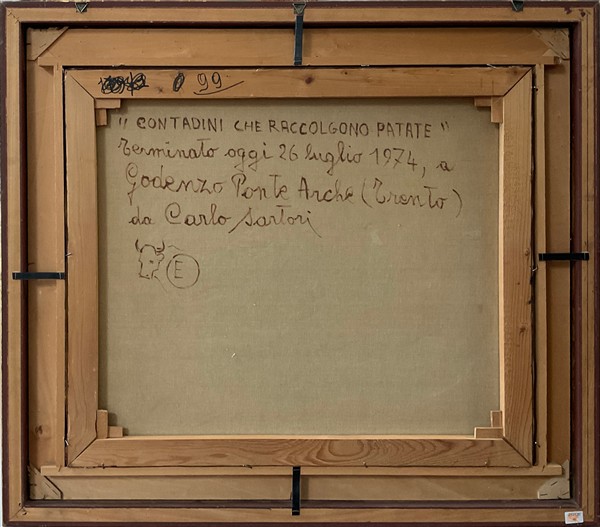 0 99
" CONTADINI CHE RACCOLGONO PATATE "
Terminato oggi 26 luglio 1974, a
Godenzo Ponte Arche (Trento)
da Carlo Sartori
E